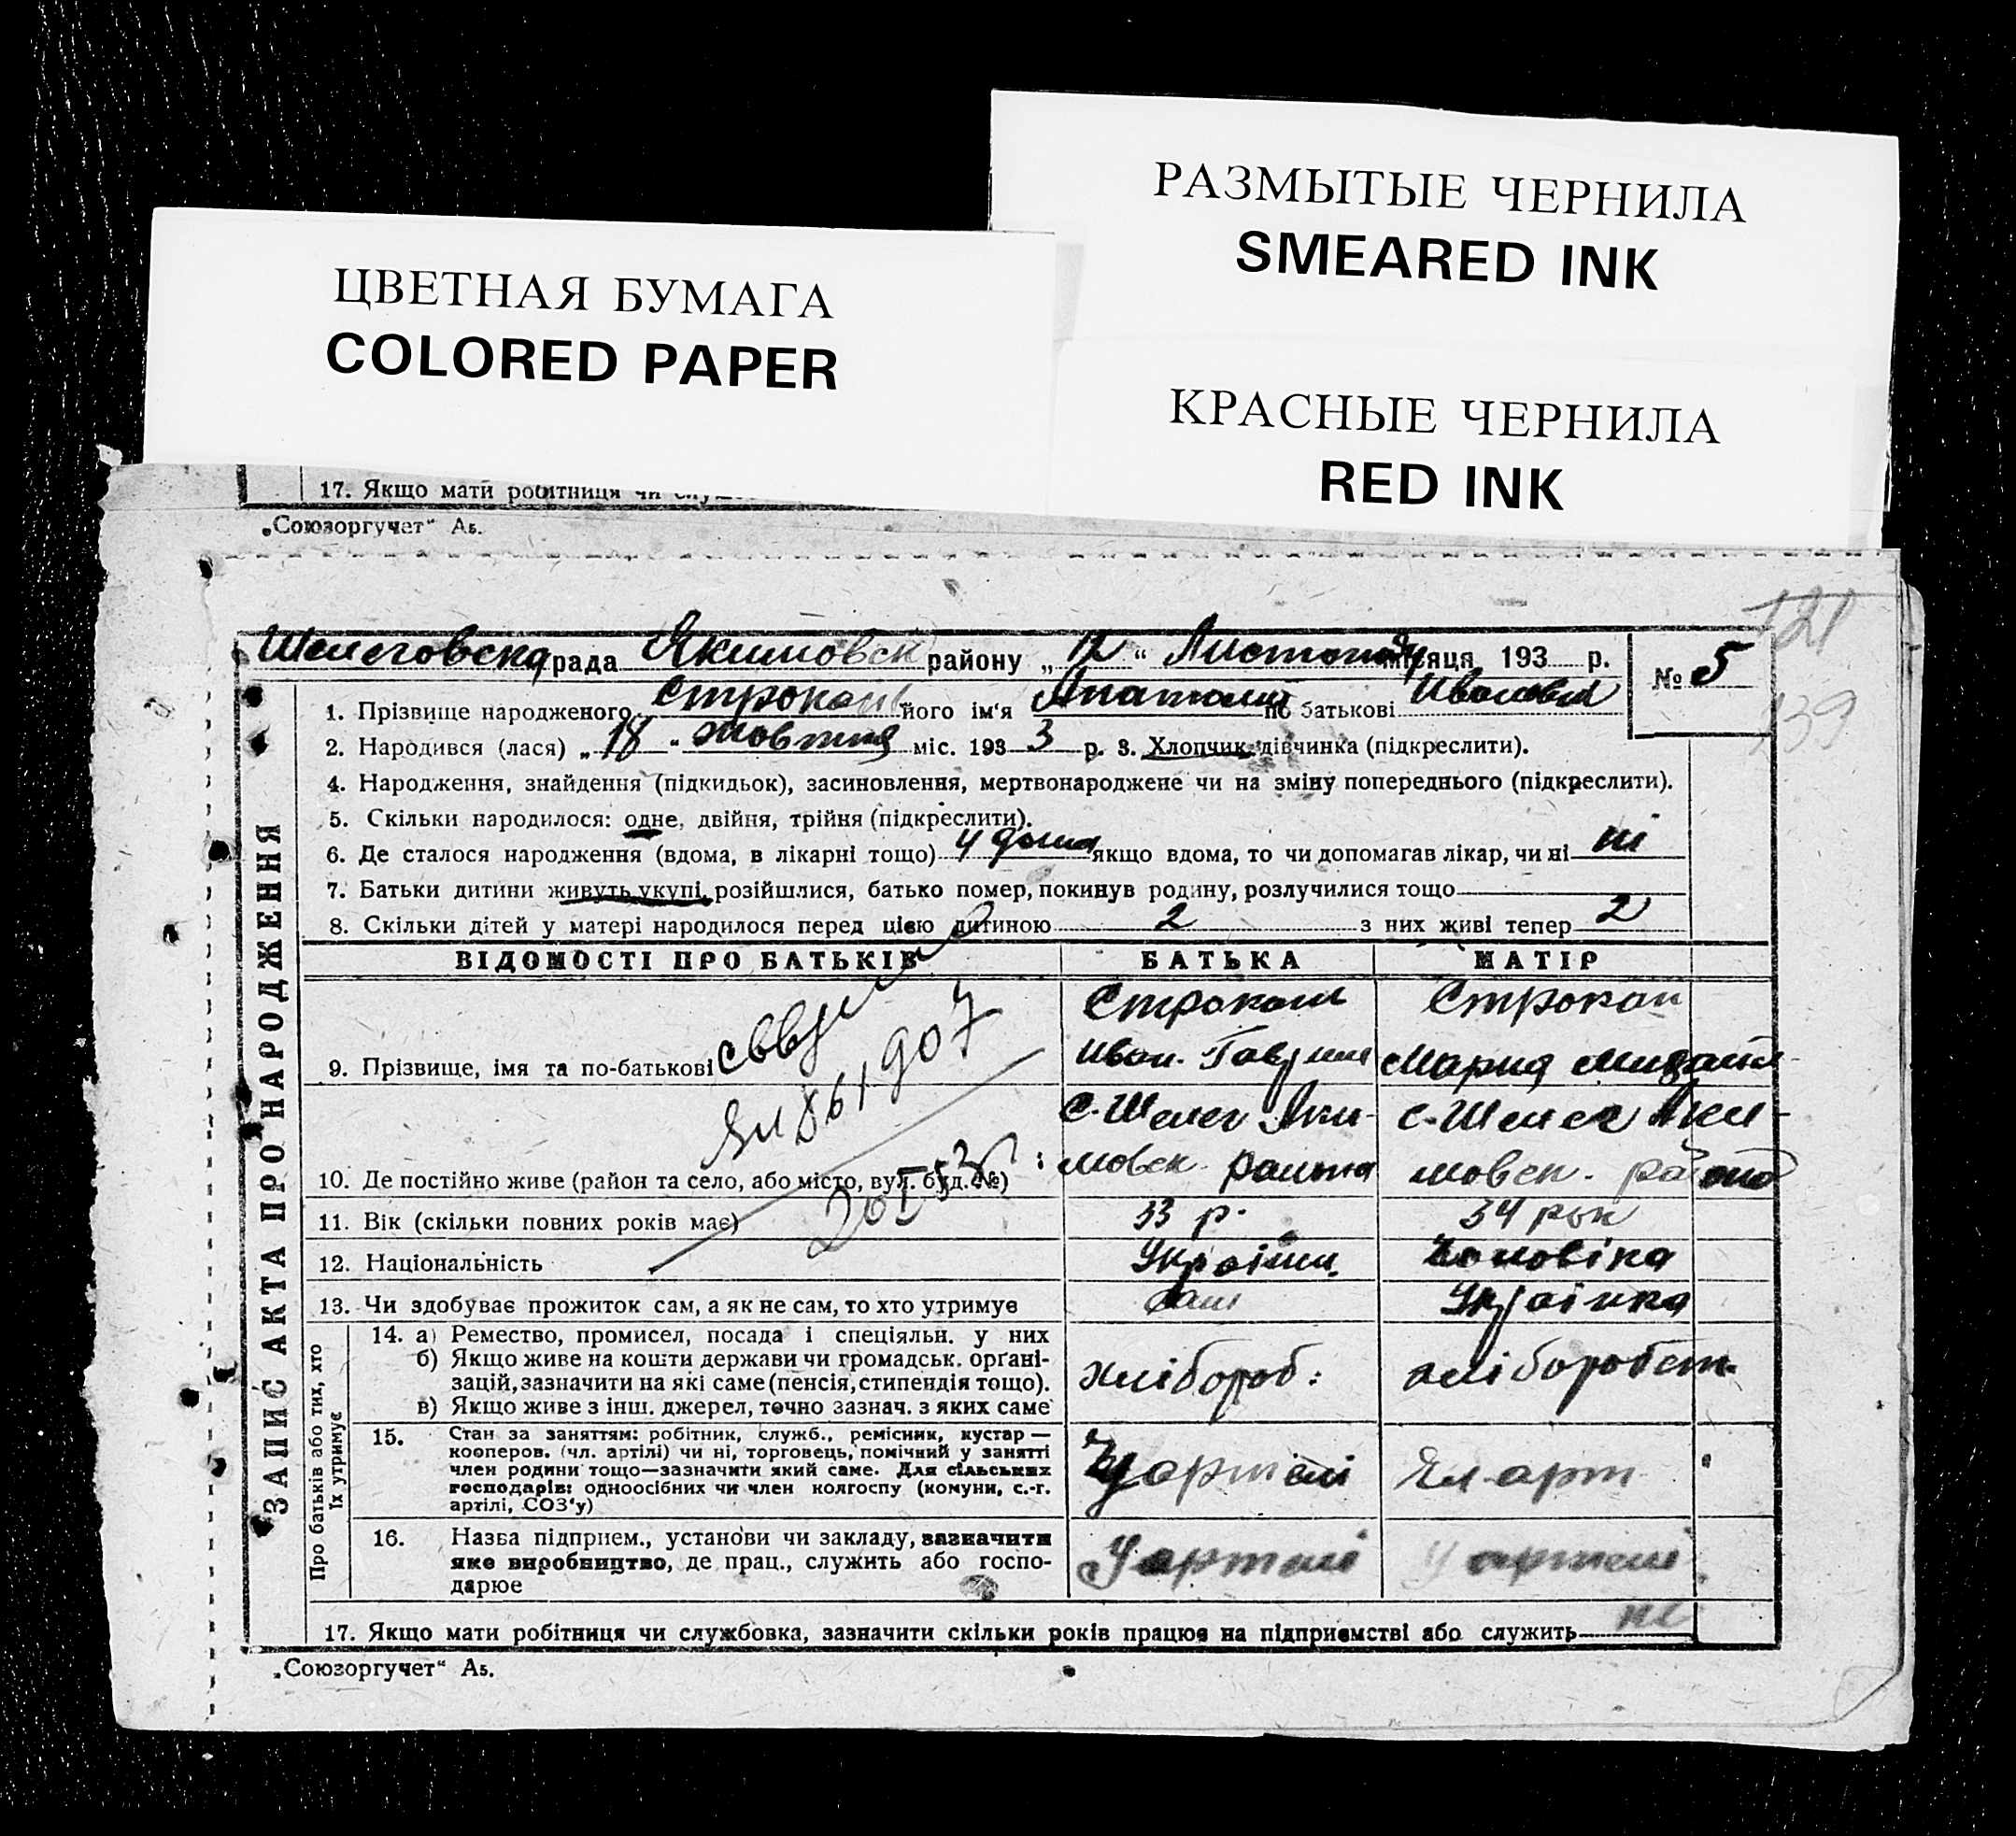 РАЗМЫТЫЕ ЧЕРНИЛА
SMEARED INK
ЦВЕТНАЯ БУМАГА
COLORED PAPER
КРАСНЫЕ ЧЕРНИЛА
RED INK
17. Якщо мати робітниця чи
„Союзоргучет“ А5.
121
Шелеговска рада Якимовск району „ 12 “ Листопаду місяця 193 р.
№ 5
139
1. Прізвище народженого Строкань його ім'я Анатолий по батькові Иванович
2. Народився (лася) „ 18 „ жовтня міс. 193 3 р. 3. Хлопчик, дівчинка (підкреслити).
4. Народження, знайдення (підкидьок), засиновлення, мертвонароджене чи на зміну попереднього (підкреслити).
5. Скільки народилося: одне, двійня, трійня (підкреслити).
6. Де сталося народження (вдома, в лікарні тощо) у дома якщо вдома, то чи допомагав лікар, чи ні ні
7. Батьки дитини живуть укупі, розійшлися, батько помер, покинув родину, розлучилися тощо
8. Скільки дітей у матері народилося перед цією дитиною 2 з них живі тепер 2
ЗАПИС АКТА ПРО НАРОДЖЕННЯ
ВІДОМОСТІ ПРО БАТЬКІВ БАТЬКА МАТІР
Строкан Строкан
9. Прізвище, імя та по-батькові Иван. Мария
861907
с. Шелег Яки- с. Шелег Яки-
10. Де постійно живе (район та село, або місто, вул. буд. №) мовск. району мовск. района
11. Вік (скільки повних років має) 33 р. 34 рок
12. Національність Україн. Чоловіка
13. Чи здобуває прожиток сам, а як не сам, то хто утримує сам Українка
Про батьків або тих, хто їх утримує
14. а) Ремество, промисел, посада і спеціяльн. у них
б) Якщо живе на кошти держави чи громадськ. органі-
зацій, зазначити на які саме (пенсія, стипендія тощо).
в) Якщо живе з інш. джерел, точно зазнач. з яких саме
хлібороб. хліборобст.
15. Стан за заняттям: робітник, служб., ремісник, кустар —
кооперов. (чл. артілі) чи ні, торговець, помічний у занятті
член родини тощо—зазначити який саме. Для сільських
господарів: одноосібних чи член колгоспу (комуни, с.-г.
артілі, СОЗ'у)
У артелі арт
16. Назва підприєм., установи чи закладу, зазначити
яке виробництво, де прац., служить або госпо-
дарює
У артелі У артелі
17. Якщо мати робітниця чи службовка, зазначити скільки років працює на підприємстві або служить ні
„Союзоргучет“ А5.